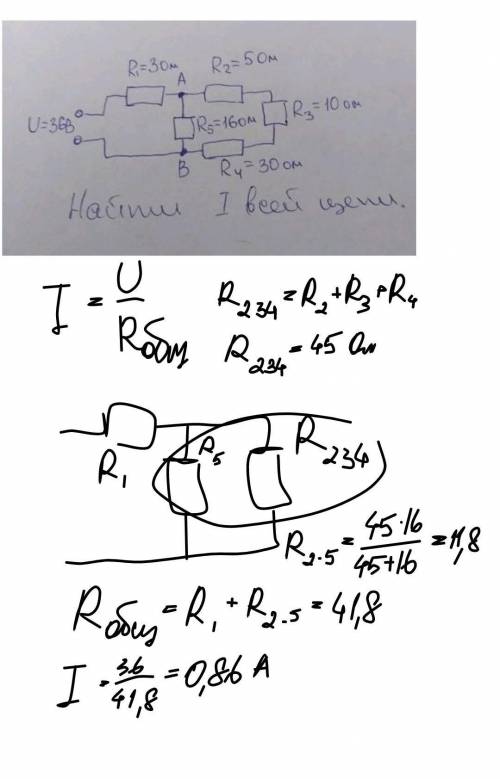 R₁=30м
A
R₂=50м
U=36В
R₅=160м
R₃=100м
B
R₄=300м
Найти I всей цепи.
I = U/Rобщ
R₂₃₄=R₂+R₃+R₄
R₂₃₄=45 Ом
R₁
R₅
R₂₃₄
R₂₋₅=45·16/45+16=11,8
Rобщ=R₁+R₂₋₅=41,8
I=36/41,8=0,86 A